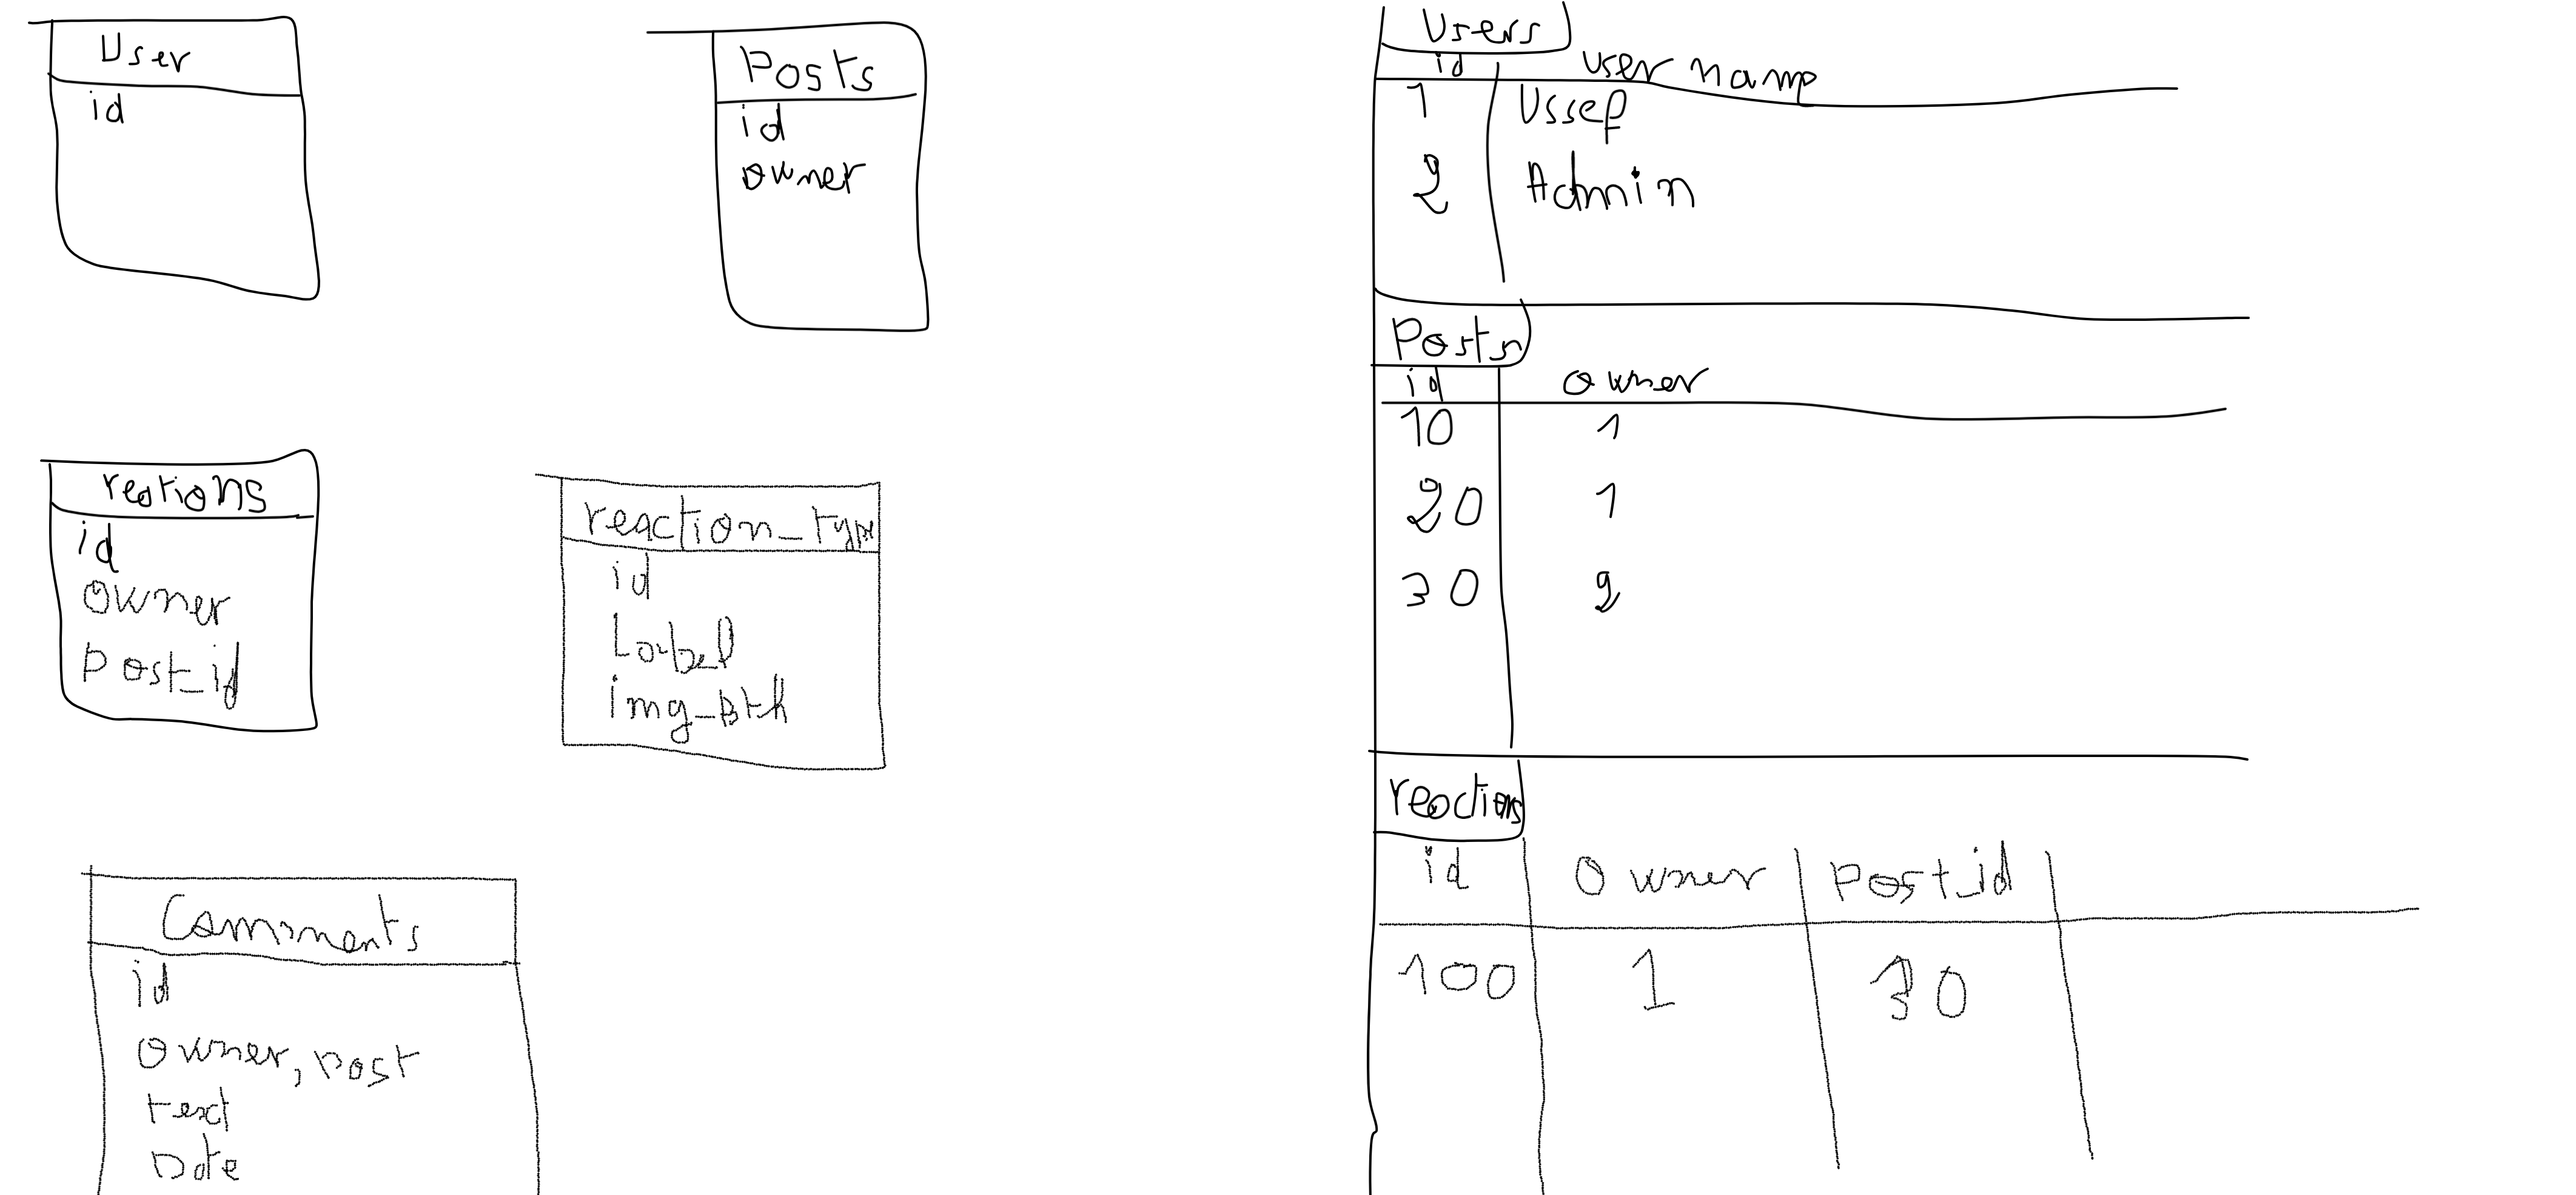 User
id
Posts
id
owner
reations
id
owner
post_id
reaction_type
id
Label
Comments
id
owner, post
text
Date
Users
id user name
1 Ussef
2 Admin
Posts
id owner
10 1
20 1
30 2
reactions
id owner Post_id
100 1 30